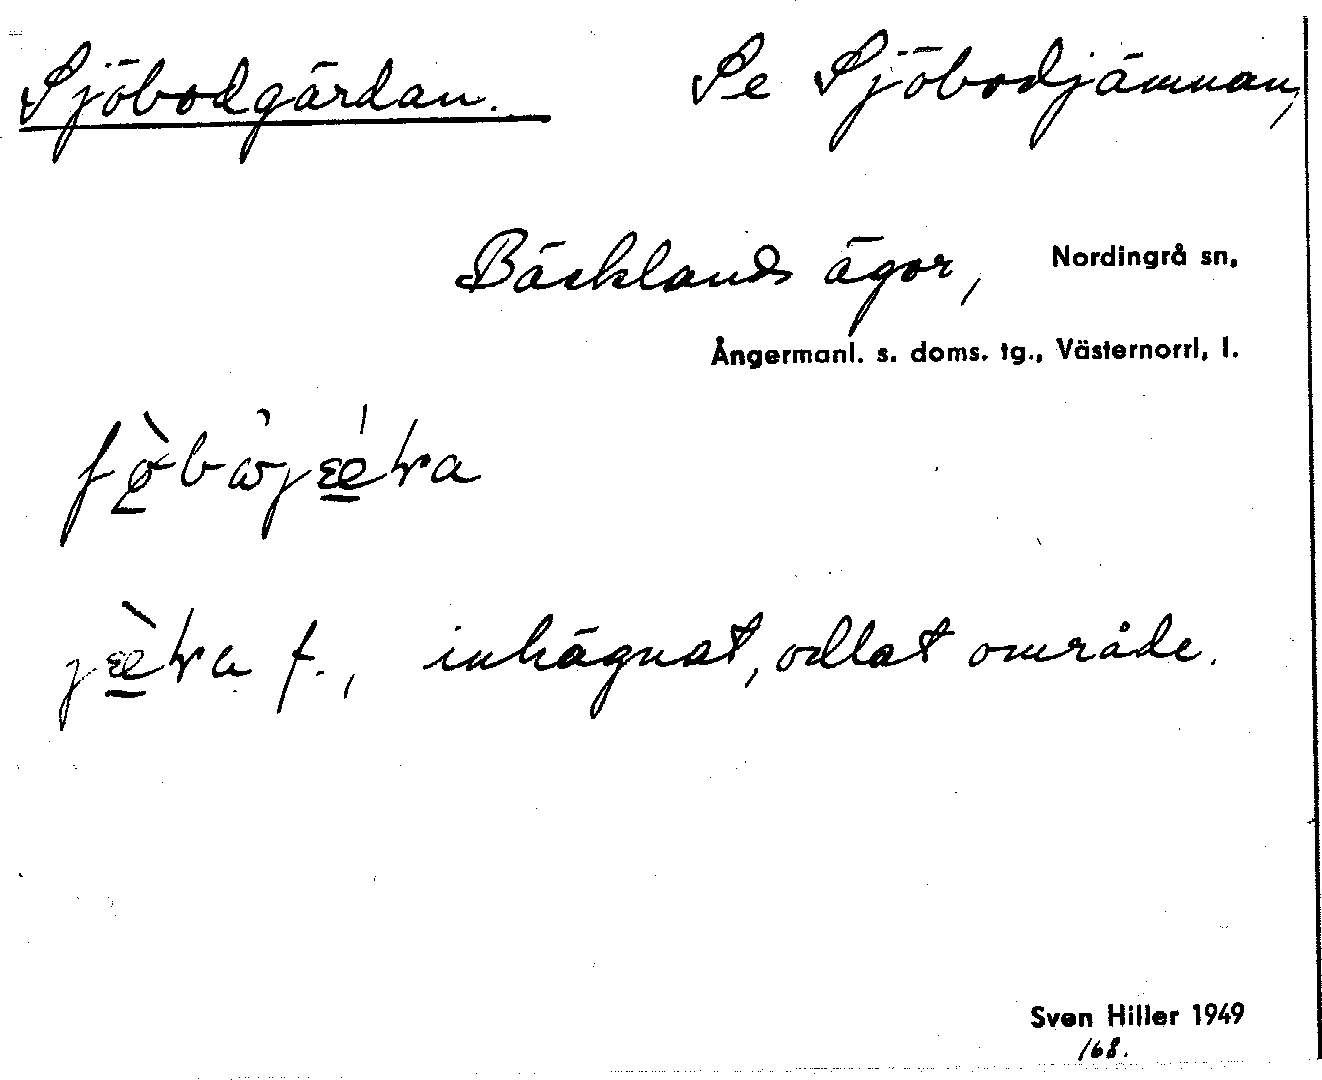 Sjöbodgärdan. Se Sjöbodjämnan,
Bäcklands ägor, Nordingrå sn,
Ångermanl. s. doms. tg., Västernorrl, l.
f., inhägnat, odlat område.
Sven Hiller 1949
168.